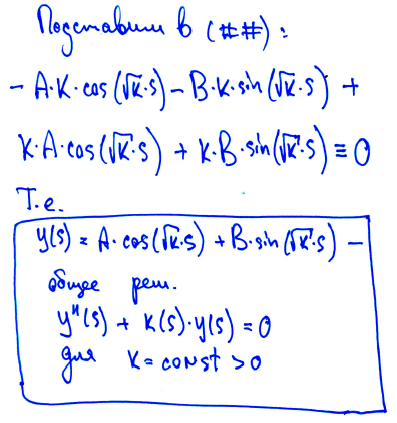 Подставим в (##):
- A·K·cos(√K·s) - B·K·sin(√K·s) +
K·A·cos(√K·s) + K·B·sin(√K·s) ≡ 0
Т.е.
y(s) = A·cos(√K·s) + B·sin(√K·s) —
общее реш.
y"(s) + K(s)·y(s) = 0
для K = const > 0